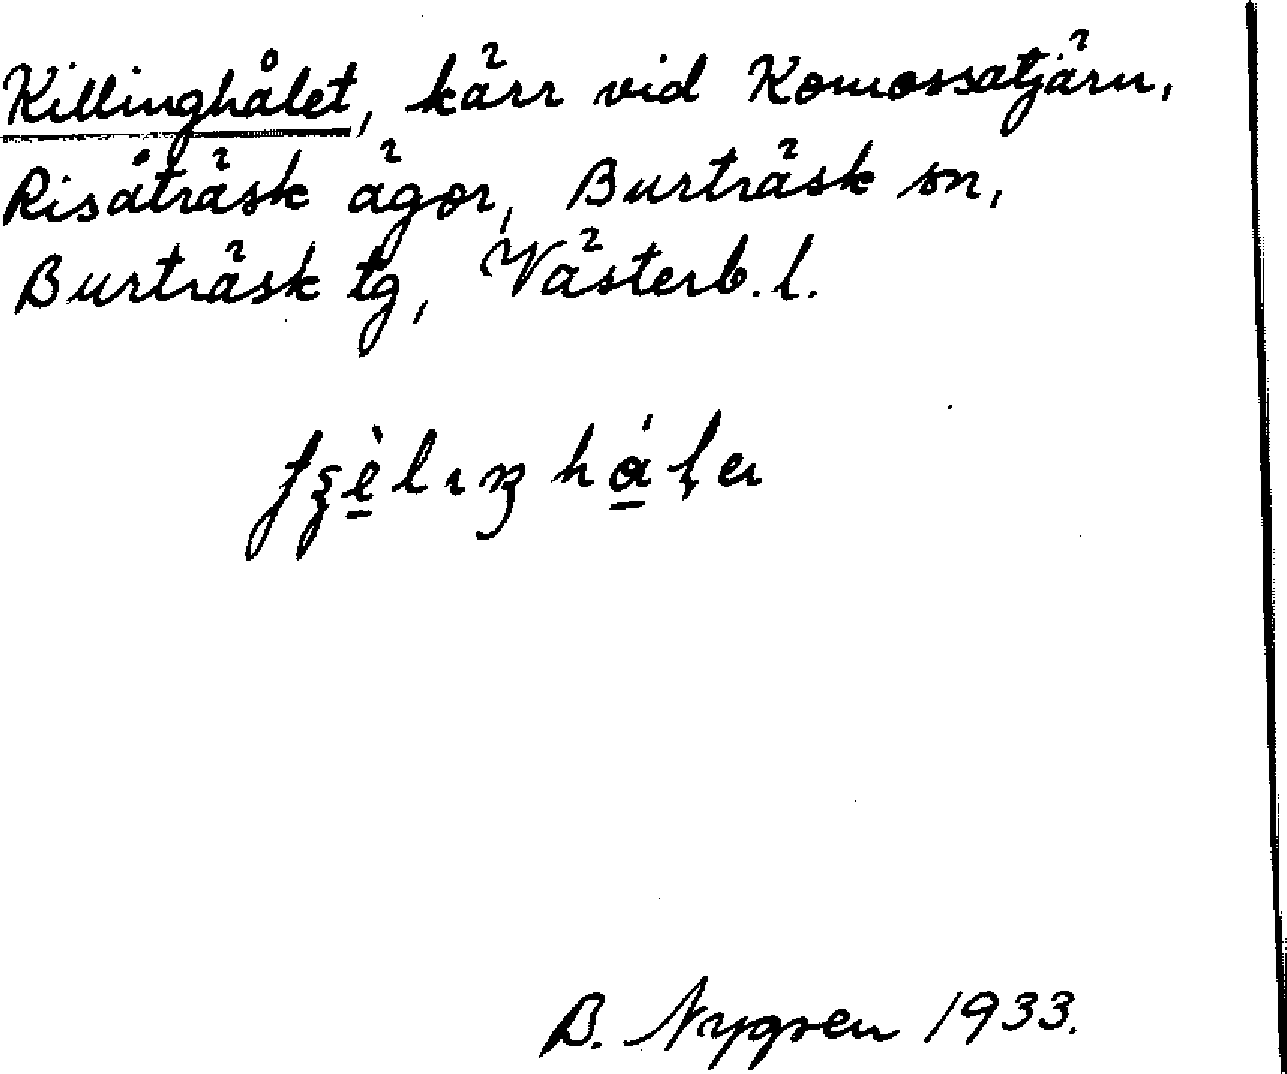 Killinghålet, kärr vid Komossatjärn,
Risåträsk ägor, Burträsk sn,
Burträsk tg, Västerb. l.
B. Nygren 1933.